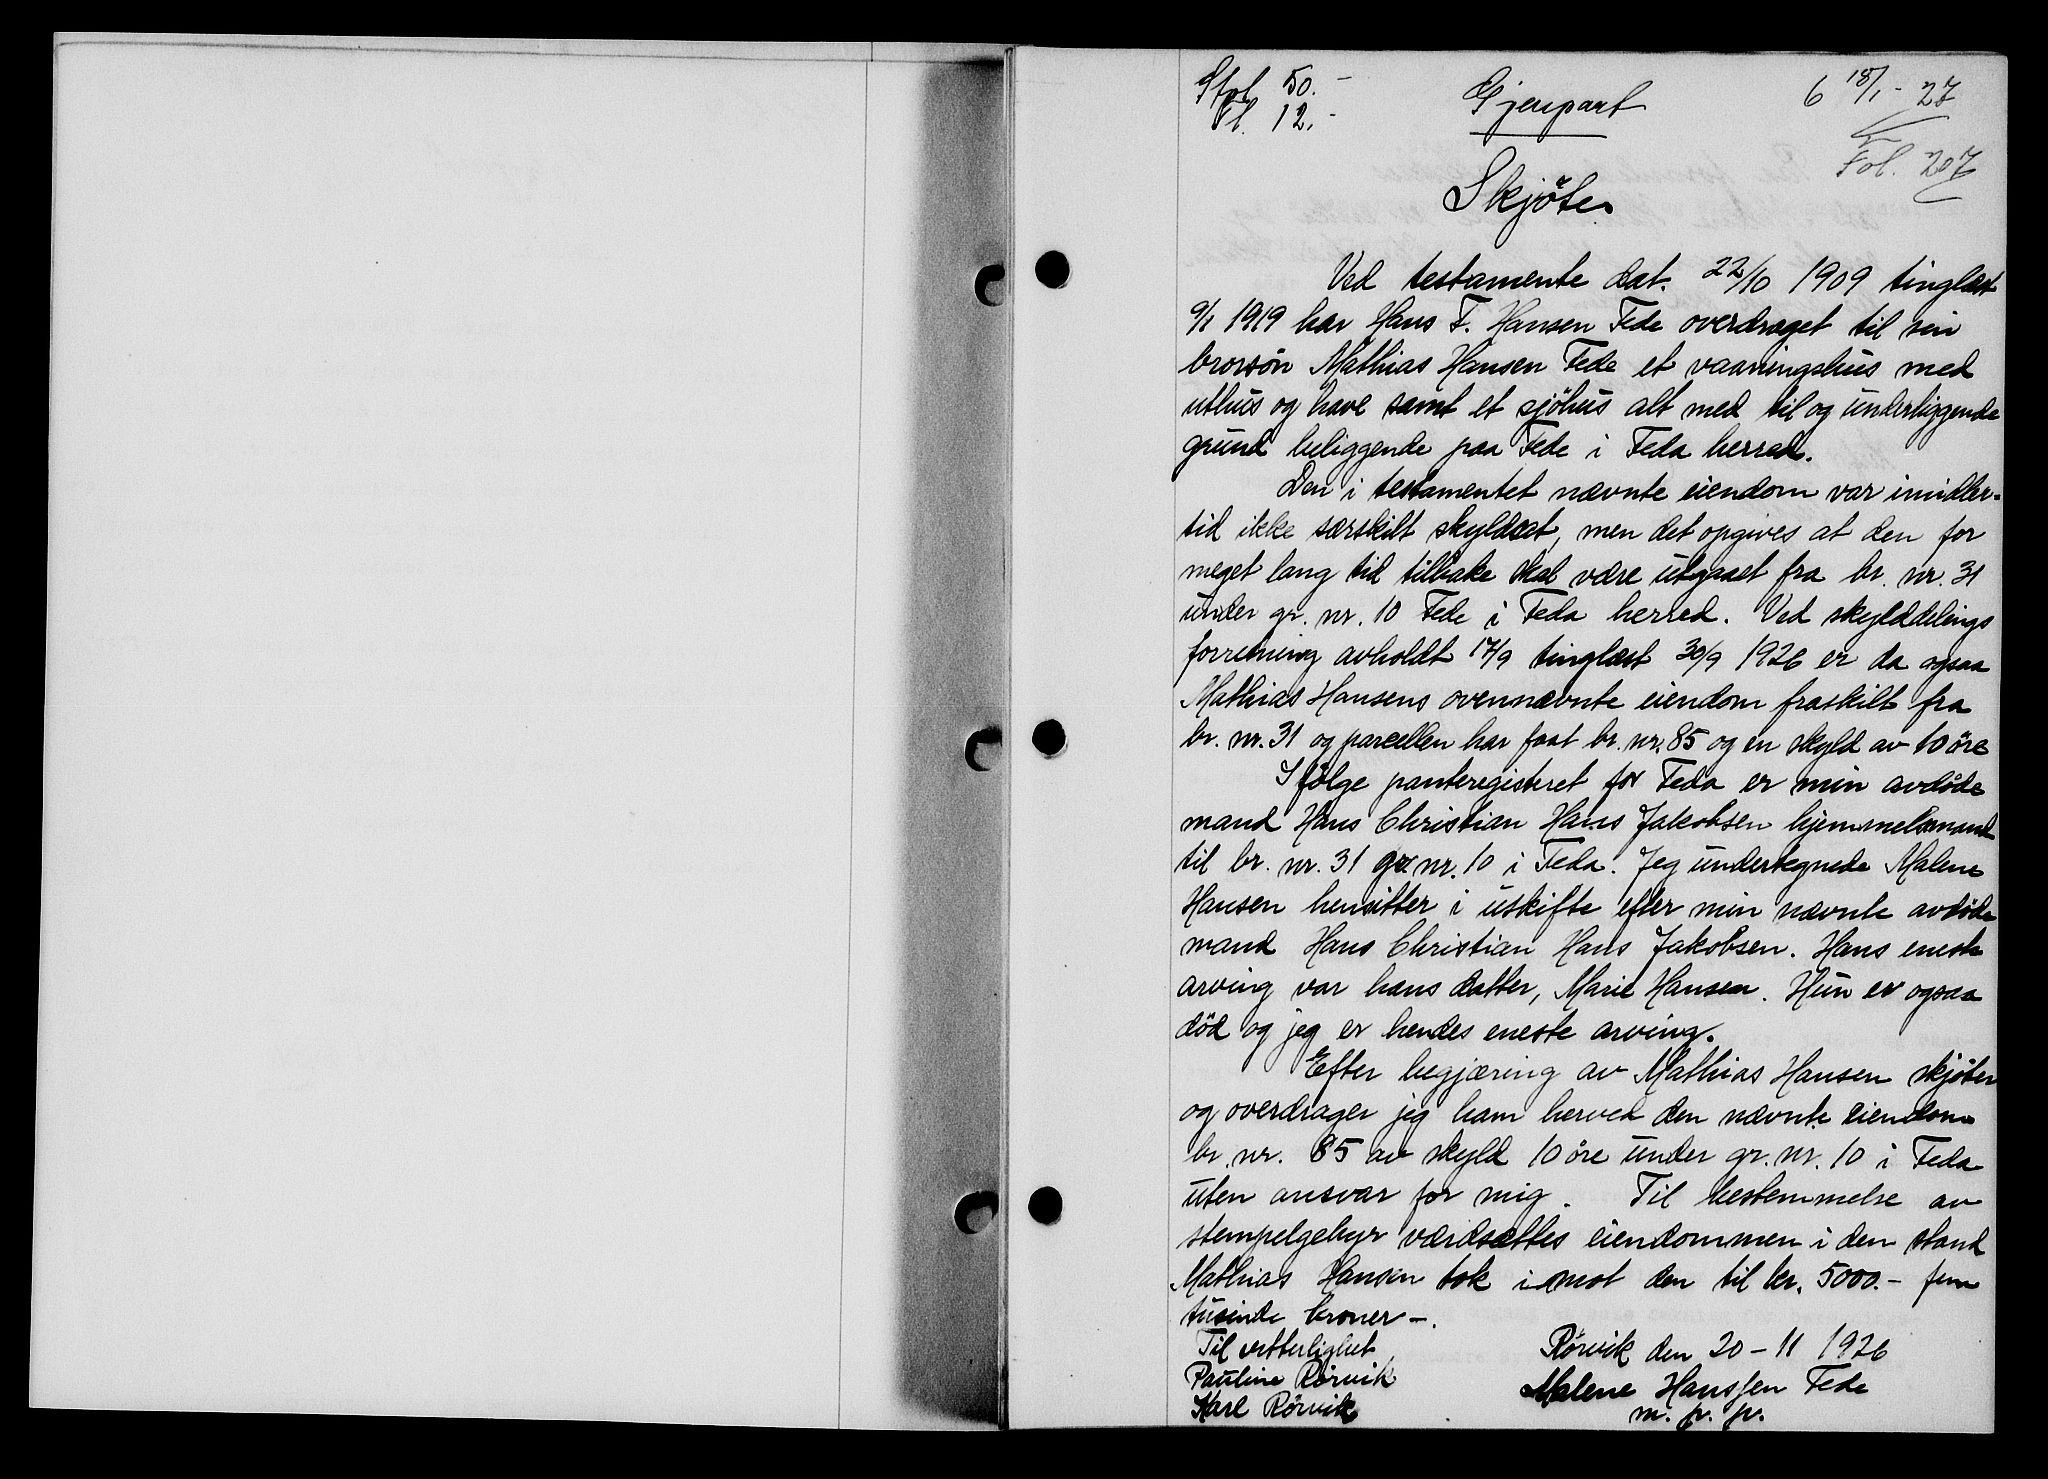 Stpl. 50.-
Tl. 12.-
Gjenpart
6 18/1 - 27
Fol. 207
Skjöte.
Ved testamente dat. 22/10 1909 tinglæst
9/1 1919 har Hans F. Hansen Fede overdraget til sin
brorsön Mathias Hansen Fede et vaaningshus med
uthus og have samt et sjöhus alt med til og underliggende
grund beliggende paa Fede i Feda herred.
Den i testamentet nævnte eiendom var imidler-
tid ikke særskilt skyldsat, men det opgives at den for
meget lang tid tilbake skal være utgaaet fra br. nr. 31
under gr. nr. 10 Fede i Feda herred. Ved skylddelings
forretning avholdt 17/9 tinglæst 30/9 1926 er da ogsaa
Mathias Hansens ovennævnte eiendom fraskilt fra
br. nr. 31 og parcellen har faat br. nr. 85 og en skyld av 10 öre
I fölge panteregisteret for Feda er min avdöde
mand Hans Christian Hans Jakobsen hjemmelsmand
til br. nr. 31 gr. nr. 10 i Feda. Jeg undertegnede Malene
Hansen hensitter i uskifte efter min nævnte avdöde
mand Hans Christian Hans Jakobsen. Hans eneste
arving var hans datter, Marie Hansen. Hun er ogsaa
död og jeg er hendes eneste arving.
Efter begjæring av Mathias Hansen skjöter
og overdrager jeg ham herved den nævnte eiendom
br. nr. 85 av skyld 10 öre under gr. nr. 10 i Feda
uten ansvar for mig. Til bestemmelse av
stempelgebyr værdsættes eiendommen i den stand
Mathias Hansen tok i mot den til kr. 5000.- fem
tusinde kroner -.
Til vitterlighet
Rörvik den 20-11 1926
Pauline Rörvik
Malene Hanssen Fede
Karl Rörvik
m. p. p.